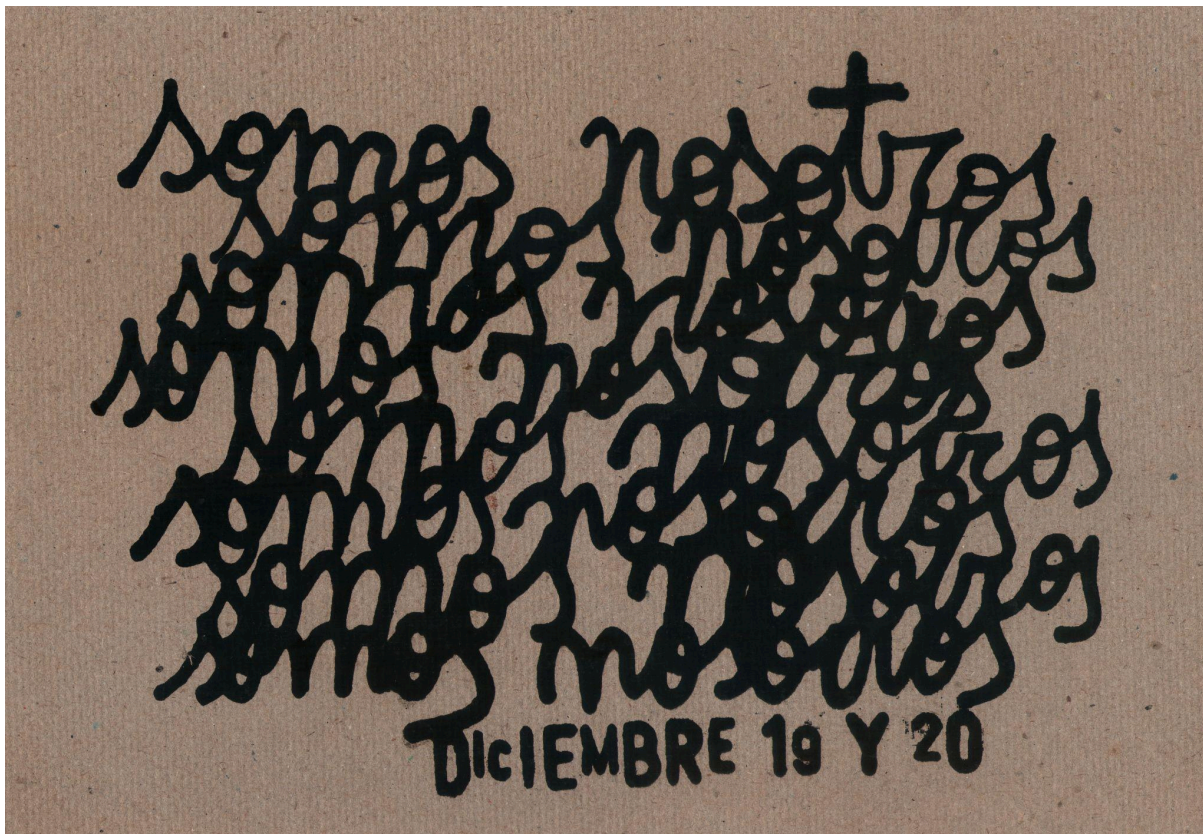 somos nosotros
somos nosotros
somos nosotros
somos nosotros
somos nosotros
somos nosotros
somos nosotros
somos nosotros
DICIEMBRE 19 Y 20